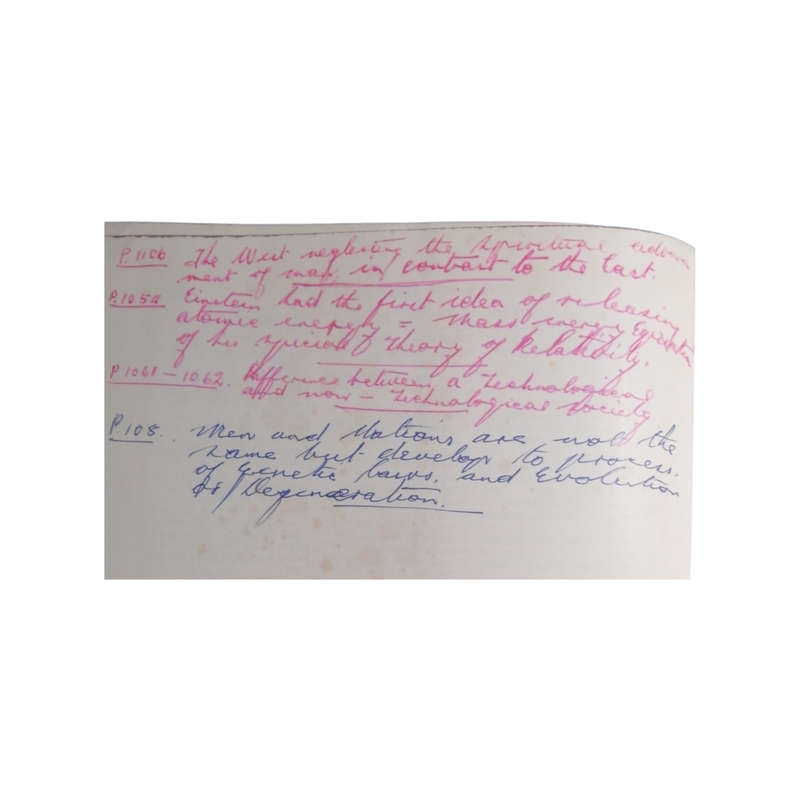 P.1106 The West neglecting the spiritual advance-
ment of man, in contrast to the East.
P.1052 Einstein had the first idea of releasing
atomic energy = Mass energy Equation
of his special Theory of Relativity.
P.1061 – 1062. Difference between a Technological
and non – Technological society
P.108. Men and Nations are not the
same but develop to process.
of Genetic laws, and Evolution
or/ Degeneration.